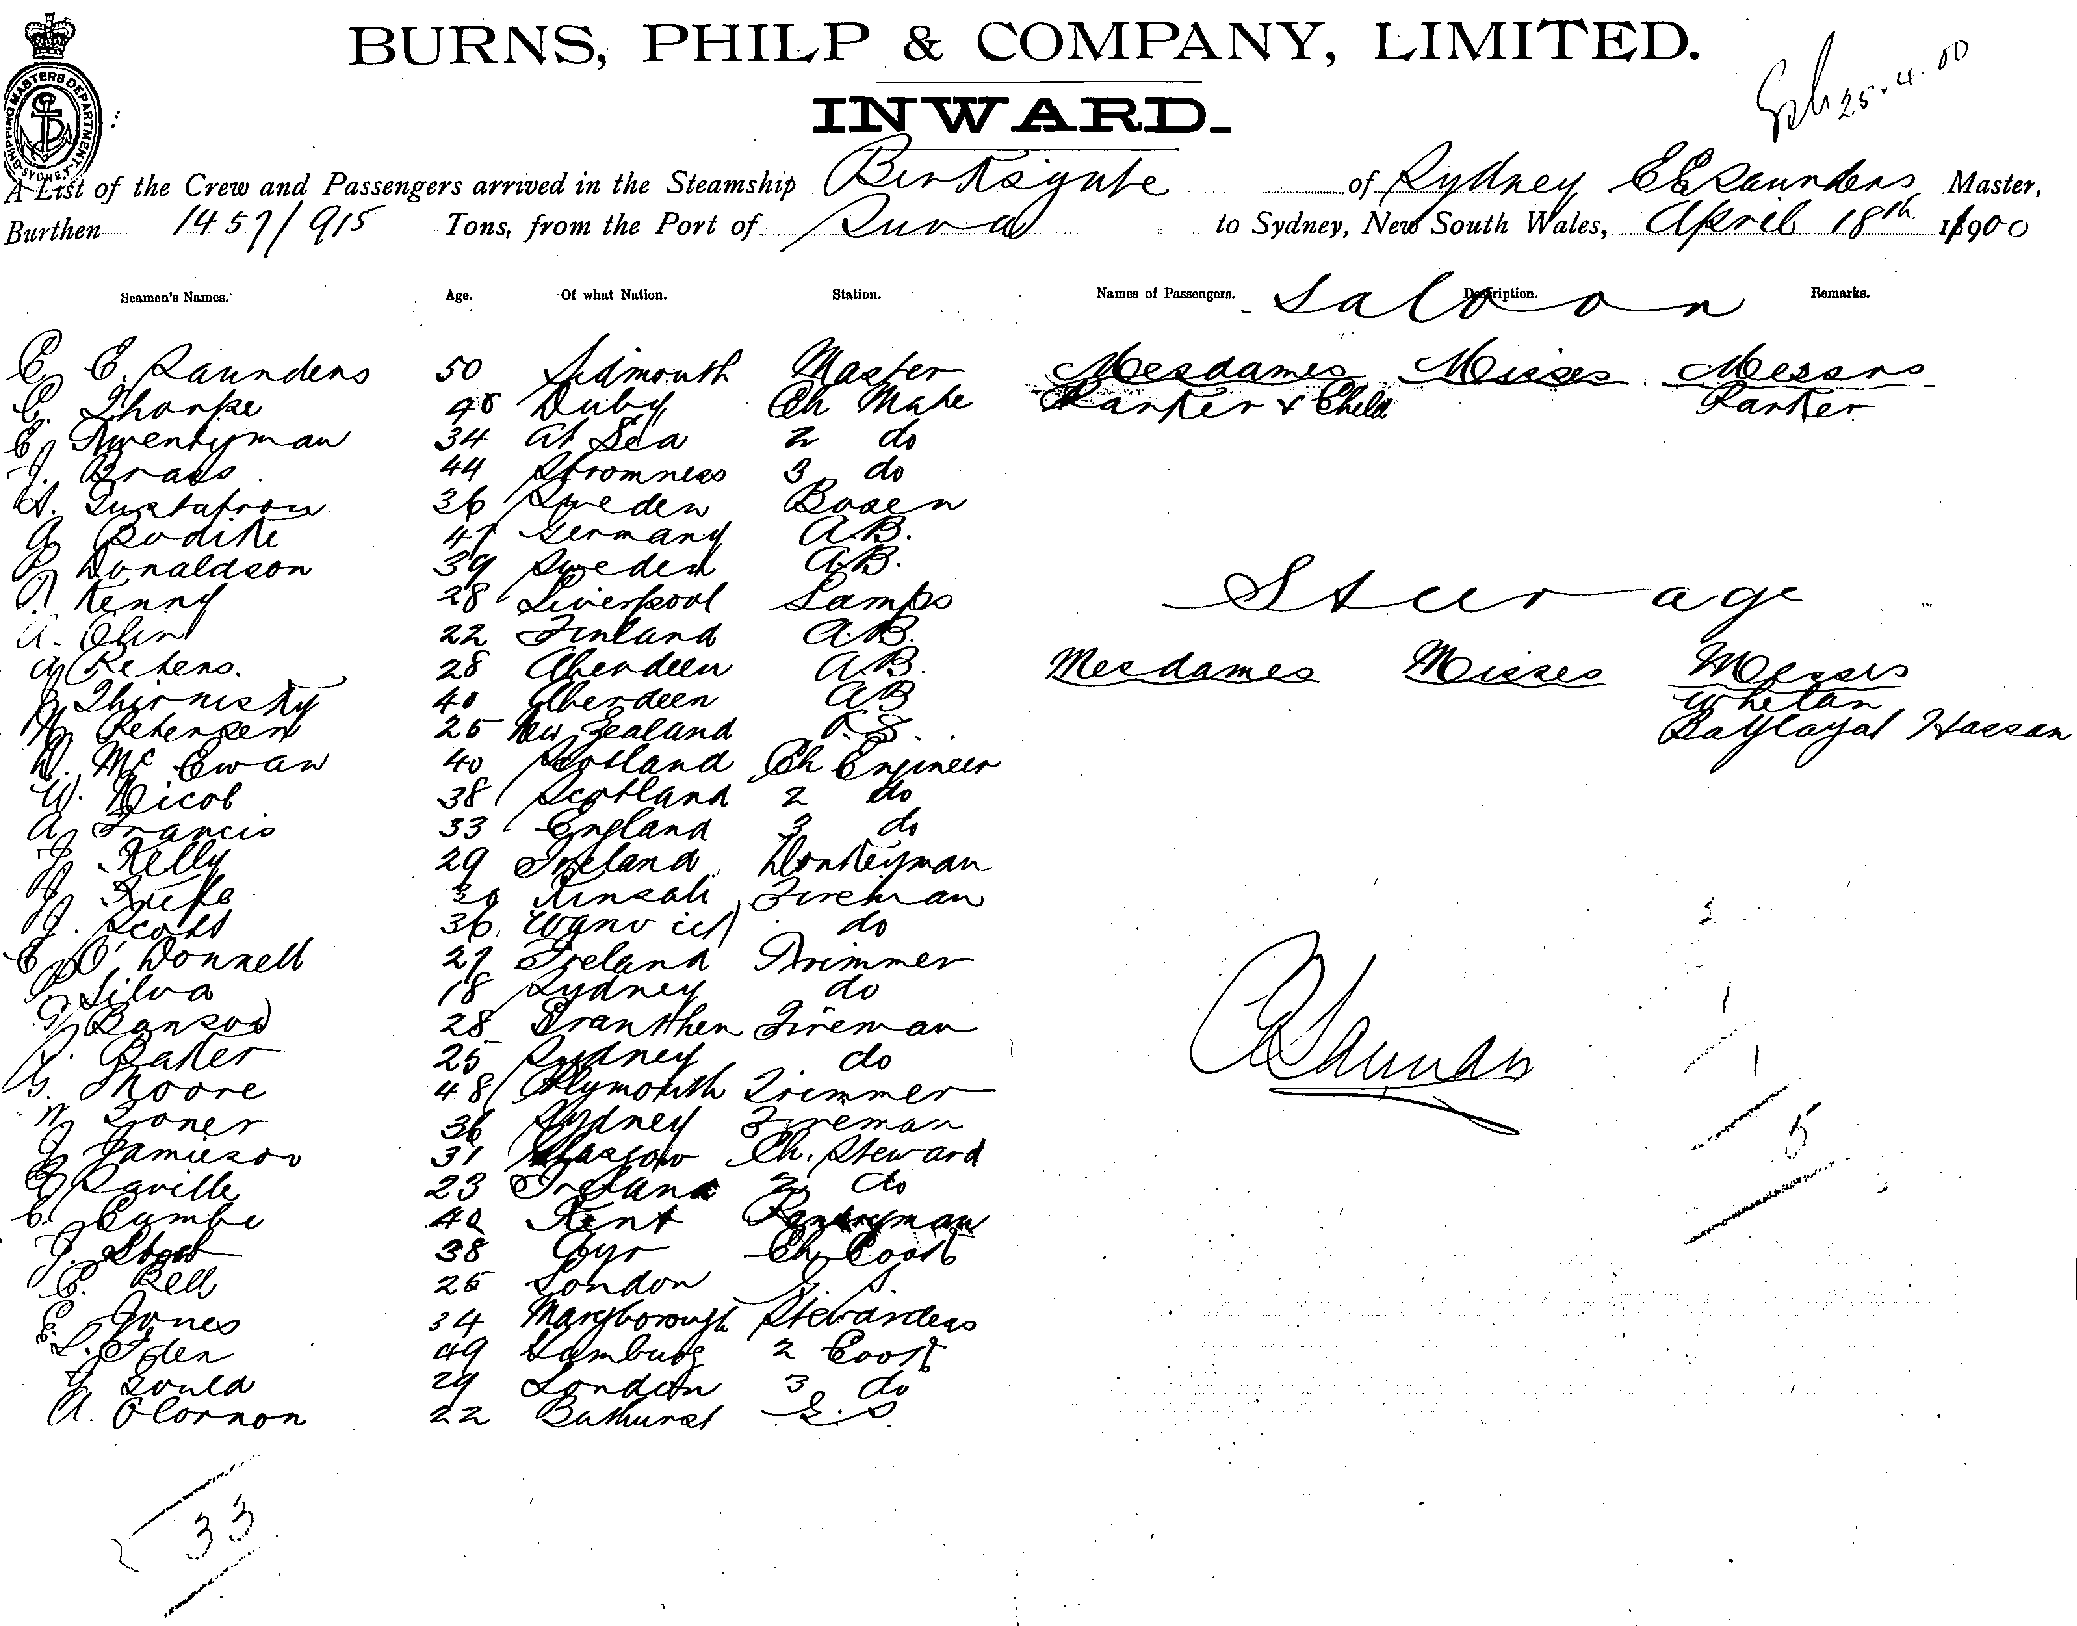 BURNS, PHILP & COMPANY, LIMITED.
INWARD.
25.4.00
SHIPPING MASTERS DEPARTMENT SYDNEY
A List of the Crew and Passengers arrived in the Steamship Birksgate of Sydney E E Saunders Master,
Burthen 1457/915 Tons, from the Port of Suva to Sydney, New South Wales, April 18th 1900
Seamen's Names. Age. Of what Nation. Station. Names of Passengers. Description. Remarks.
Saloon
E E. Saunders 50 Sidmouth Master Mesdames Misses Messrs
C. Thorpe Ch Mate Parker & Child Parker
C Twentyman 34 At Sea 2 do
J. Brass 44 Stromness 3 do
A. Gustafson 36 Sweden Bosen
47 Germany A.B.
Donaldson 39 Sweden A.B.
Kenny 28 Liverpool Lamps
Steerage
A. Olin 22 Finland A.B.
Petens. 28 Aberdeen A.B. Mesdames Misses Messrs
40 Aberdeen AB Whelan
Petersen 25 New Zealand Hassan
D. Mc Ewan 40 Scotland Ch Engineer
W. Nicol 38 Scotland 2 do
A Francis 33 England 3 do
J Kelly 29 Ireland Donkeyman
Kinsale Fireman
J. Scott 36 do
C O'Donnell 27 Ireland Trimmer
Silva 18 Sydney do
28 Fireman
Baker 25 Sydney do
G. Moore 48 Plymouth Trimmer
36 Sydney Fireman
J Jamieson 31 Glasgow Ch. Steward
Saville 23 Ireland 2 do
40 Kent Pantryman
J. 38 Ayr Ch Cook
C. Bell 25 London G. S.
E. Jones 34 Maryborough Stewardess
49 Hamburg 2 Cook
Gould 29 London 3 do
A. O'Connon 22 Bathurst G. S.
E Saunders
2
1
1
5
33